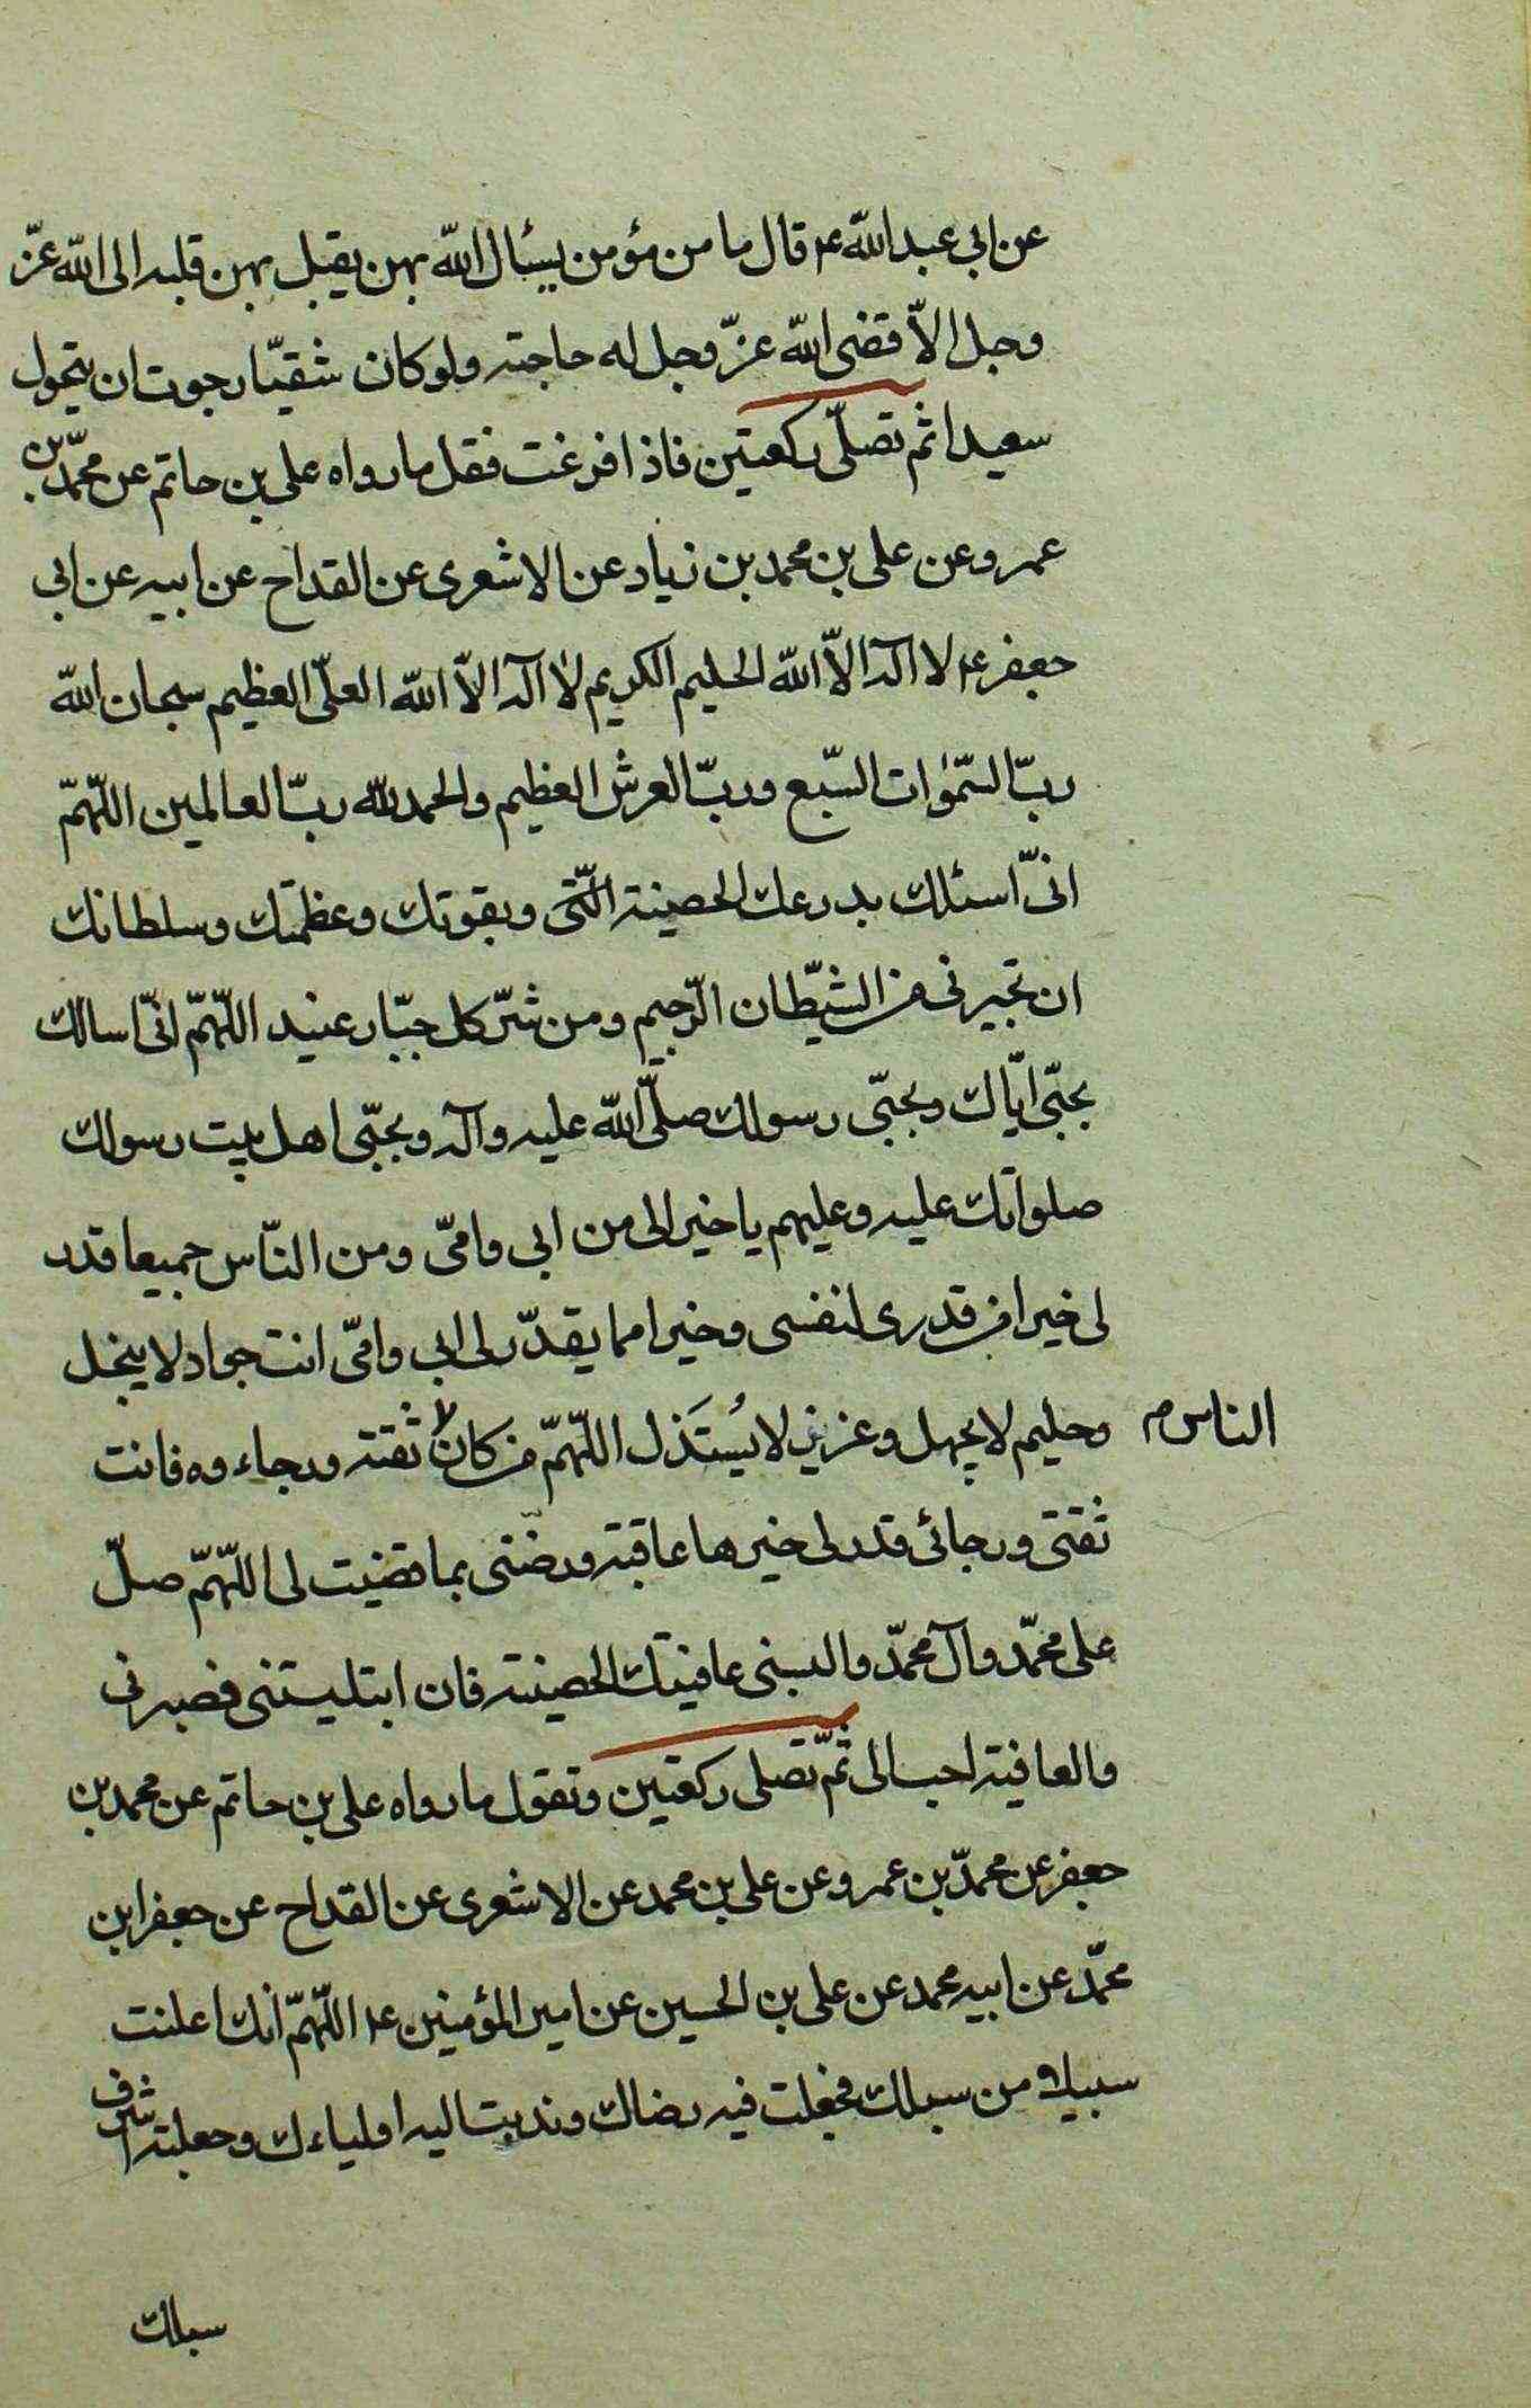 عن ابی عبد اللّه ع قال ما من مؤمن یسئال اللّه بهن یقبل بهن قلبه الی اللّه عزّ
وجل الاّ قضی اللّه عزّ وجل له حاجته ولو کان شقیّا رجوت ان یتحول
سعیدا ثم تصلّی رکعتین فاذا فرغت فقل ما رواه علی بن حاتم عن محمّد بن
عمرو عن علی بن محمد بن زیاد عن الاشعری عن القداح عن ابیه عن ابی
جعفر ع لا اله الاّ اللّه الحلیم الکریم لا اله الاّ اللّه العلیّ العظیم سبحان اللّه
ربّ السّمٰوات السّبع وربّ العرش العظیم والحمد للّه ربّ العالمین اللّهمّ
انّی اسئلک بدرعک الحصینة الّتی وبقوتک وعظمتک وسلطانک
ان تجیرنی من الشیّطان الرّجیم ومن شرّ کل جبّار عنید اللّهمّ انّی اسالک
بحبّی ایّاک وبحبّی رسولک صلّی اللّه علیه وآله وبحبّی اهل بیت رسولک
صلواتک علیه وعلیهم یا خیر الی من ابی وامّی ومن النّاس جمیعا قدر
لی خیرا من قدری لنفسی وخیرا مما یقدّر لی ابی وامّی انت جواد لا یبخل
وحلیم لا یجهل وعزیز لا یُستَذل اللّهمّ من کان ثقته ورجاءوه فانت
الناس م
ثقتی ورجائی قدر لی خیرها عاقبة ورضّنی بما قضیت لی اللّهمّ صلّ
علی محمّد وآل محمّد والبسنی عافیتک الحصینة فان ابتلیستنی فصبرنی
والعافیة احب الی ثمّ تصلی رکعتین وتقول ما رواه علی بن حاتم عن محمد بن
جعفر عن محمدّ بن عمرو عن علی بن محمد عن الاشعری عن القداح عن جعفر ابن
محمّد عن ابیه محمد عن علی بن الحسین عن امیر المؤمنین ع اللّهمّ انک اعلنت
سبیلا من سبلک فجعلت فیه رضاک وندبت الیه اولیاءک وجعلته اشرف
سبلک